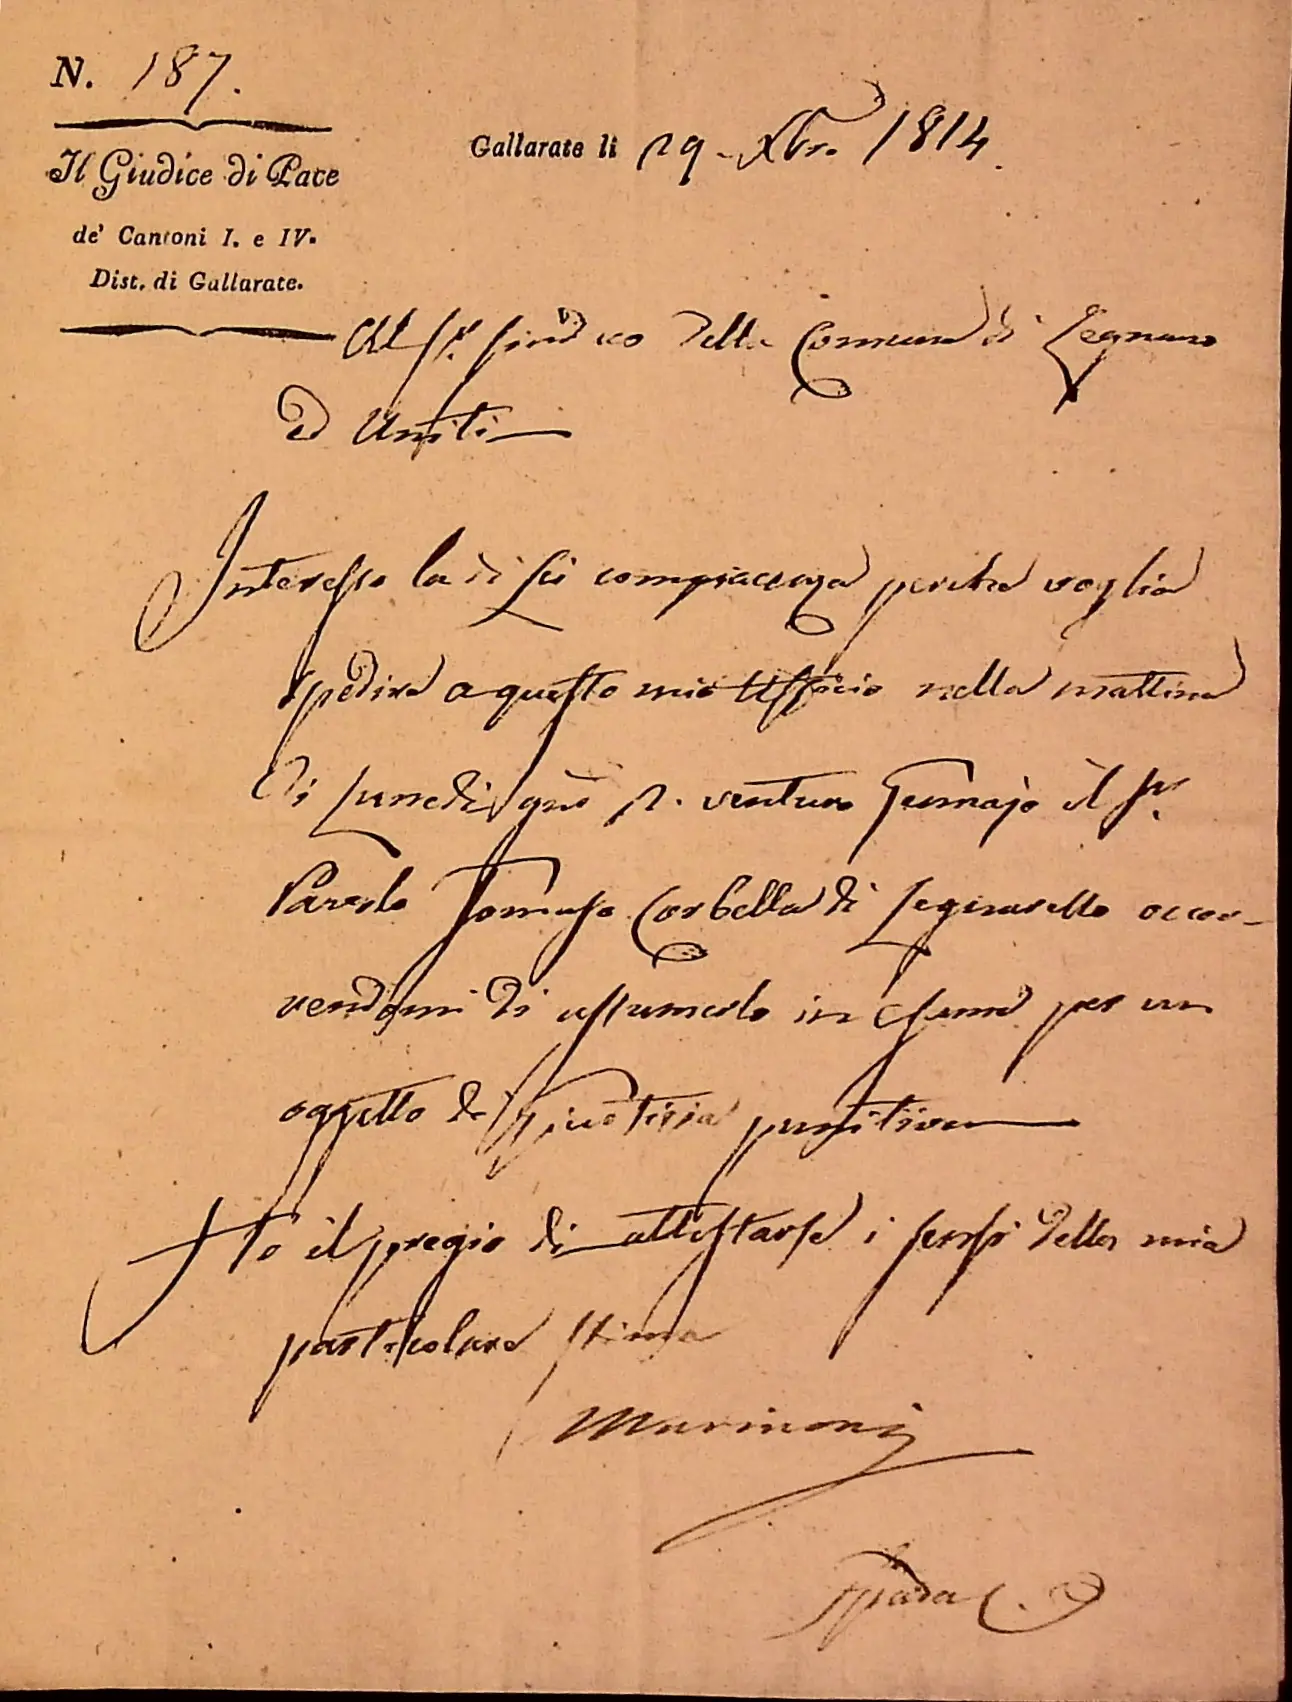 N. 187.
Il Giudice di Pace
de' Cantoni I. e IV.
Dist. di Gallarate.
Gallarate li 29. Xbre. 1814.
Al Sr. Sindaco della Comune di Legnano
ed Uniti
Interesso la di Lei compiacenza perchè voglia
spedire a questo mio Uffizio nella mattina
di Lunedì 2. venturo Gennajo il Sr.
Tomaso Corbella di Legnarello occor-
rendomi di assumerlo in Esame per un
oggetto di Giustizia punitiva
Ho il pregio di attestarle i sensi della mia
particolare stima
Marinoni
Spada C.